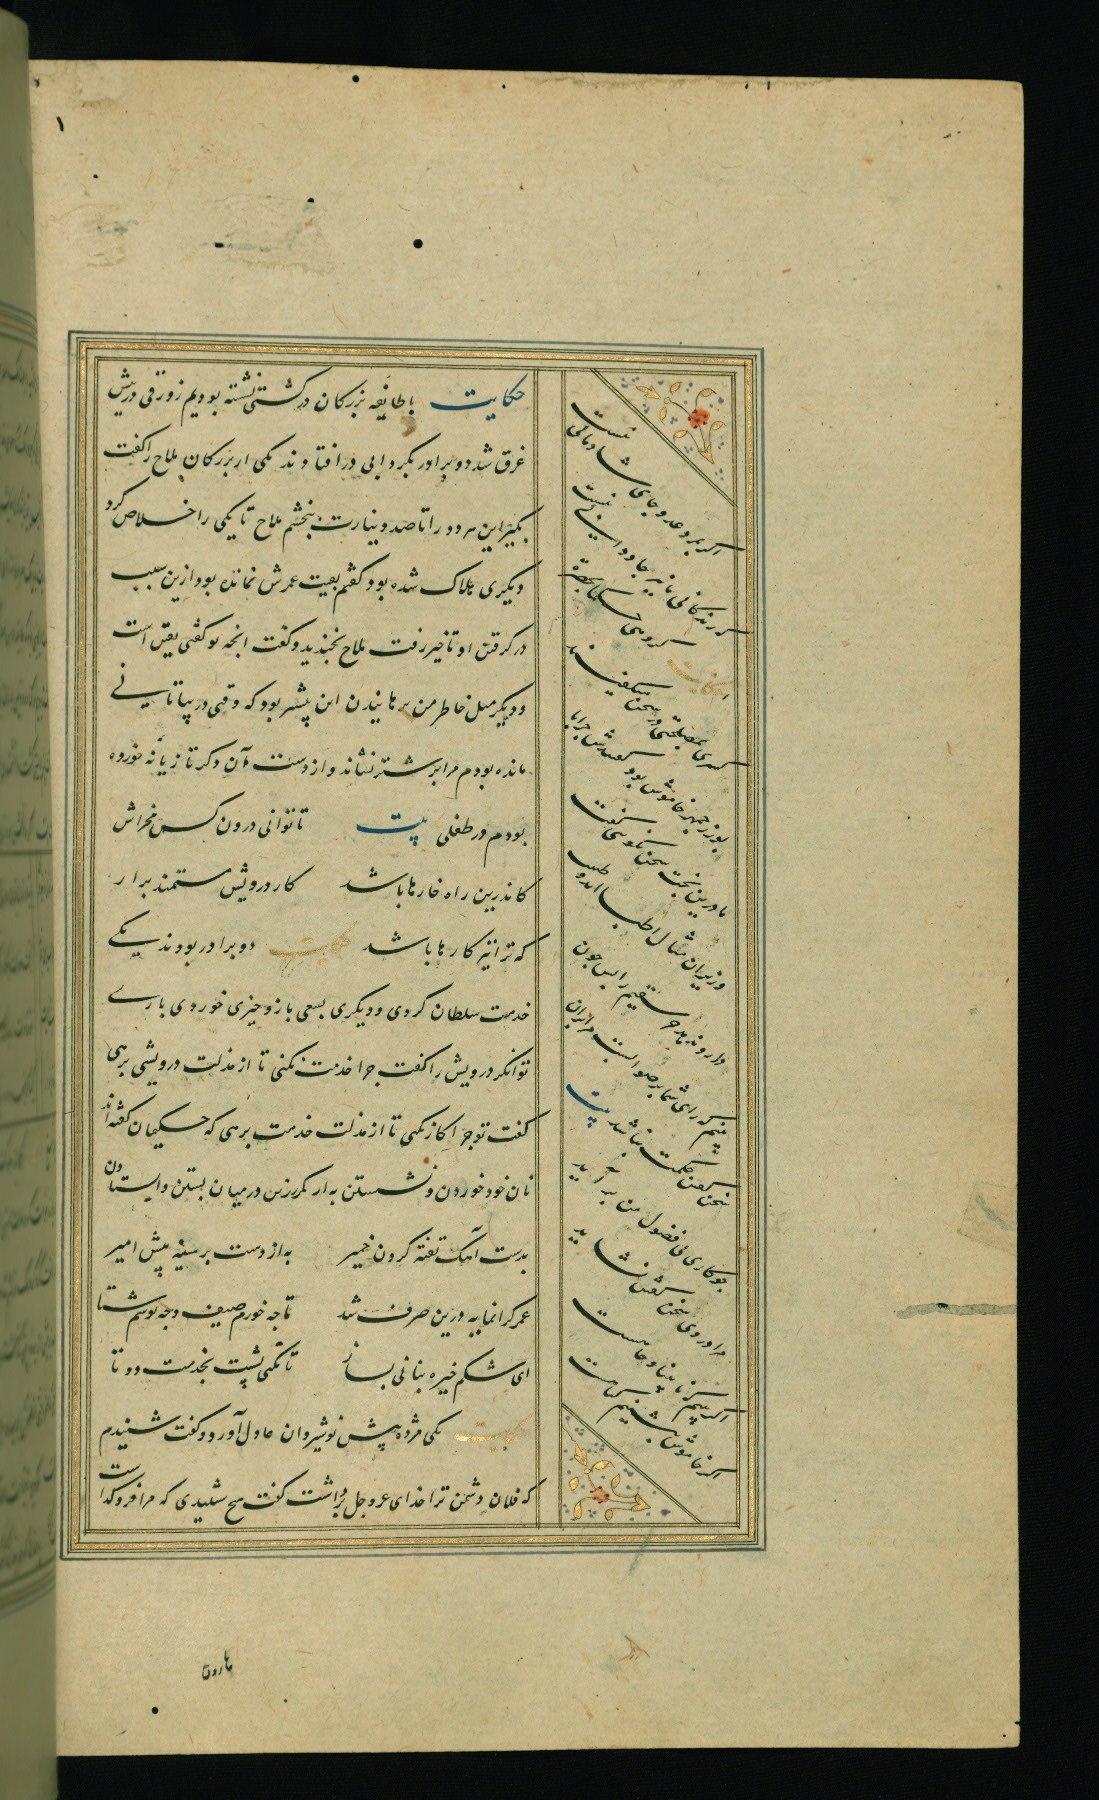 حکایت با طایفه بزرگان در کشتی نشسته بودیم زورقی در پیش
غرق شد دو برادر بگردابی در افتادند یکی از بزرگان ملاح را گفت
بگیر این هر دو را تا صد دینارت ببخشم ملاح تا یکی را خلاص کرد
دیگری هلاک شده بود گفتم بقیت عمرش نمانده بود ازین سبب
در گرفتن او تاخیر رفت ملاح بخندید و گفت انچه تو گفتی یقین است
و دیگر میل خاطر من برهانیدن این بیشتر بود که وقتی در بیابانی
مانده بودم مرا بر شتر نشاند و از دست آن دگر تازیانه خورده
بودم در طفلی بیت تا توانی درون کس مخراش
کاندرین راه خارها باشد کار درویش مستمند برار
که ترا نیز کارها باشد حکایت دو برادر بودند یکی
خدمت سلطان کردی و دیگری بسعی بازو چیزی خوردی باری
توانگر درویش را گفت چرا خدمت نکنی تا از مذلت درویشی برهی
گفت تو چرا کار نکنی تا از مذلت خدمت برهی که حکیمان گفته‌اند
نان خود خوردن و نشستن به از کمر زرین در میان بستن و ایستادن
بدست آهک تفته کردن خمیر به از دست بر سینه پیش امیر
عمر گرانمایه درین صرف شد تا چه خورم صیف و چه پوشم شتا
ای شکم خیره بنانی بساز تا نکنی پشت بخدمت دو تا
حکایت یکی مژده پیش نوشیروان عادل آورد و گفت شنیدم
که فلان دشمن ترا خدای عزوجل برداشت گفت هیچ شنیدی که مرا فرو گذاشت
اگر بمرد عدو جای شادمانی نیست
که زندگانی ما نیز جاودانی نیست
حکایت گروهی حکما بحضرت
کسری بمصلحتی در سخن میگفتند
بوزرجمهر خاموش بود گفتندش چرا با
ما درین بحث سخن نگویی گفت
وزیران مثال اطبا اند و طبیب
دارو ندهد جز سقیم را پس چون
بینم که رای شما بر صوابست مرا بران
سخن گفتن حکمت نباشد بیت
چو کاری بی فضول من بر آید
مرا در وی سخن گفتن نشاید
اگر بینم که نابینا و چاهست
اگر خاموش بنشینم گناهست
هارون